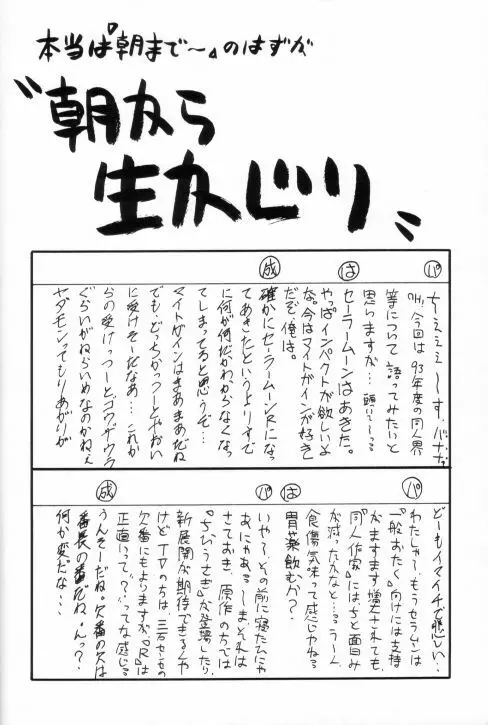 本当は『朝まで〜』のはずが
〝朝から
生かじり〟
パ
ちぇぇぇ〜す。バナナ
OH、今回は93年度の同人界
等について語ってみたいと
思いますが…
は
セーラームーンはあきた。
やっぱインパクトが欲しいよ
な。今はマイトガインが好き
だぞ、俺は。
成
確かにセーラームーンRになっ
てあきたというよりすで
に何が何だかわからなくなっ
てしまってると思うぞ…
マイトガインはまあまあだね
でも、どっちかっつーとやおい
に受けそーだなあ…これか
らの受けっつーとゴウザウラ
ぐらいがねらいめなのかねぇ
ヤダモンってもりあがりが
パ
どーもイマイチで悲しい…
わたしゃ〜もうセラムンは
『一般おたく』向けには支持
がますます増大されても、
『同人作家』にはちと面白み
が減ったかなと…うーん
は
食傷気味って感じかねえ
胃薬飲むか?
パ
いや〜、その前に寝たひにゃ
あ、にゃあ〜しまそれは
さておき、原作の方では
『ちびうさぎ』が登場したり
新展開が期待できるんや
けど、TVのちは、三石セーセの
欠番にもよりますが、『R』は
正直いって、?、ってな感じる
成
うんそーだね。欠番の欠は
番長の番だね。んっ?
何か変だな…